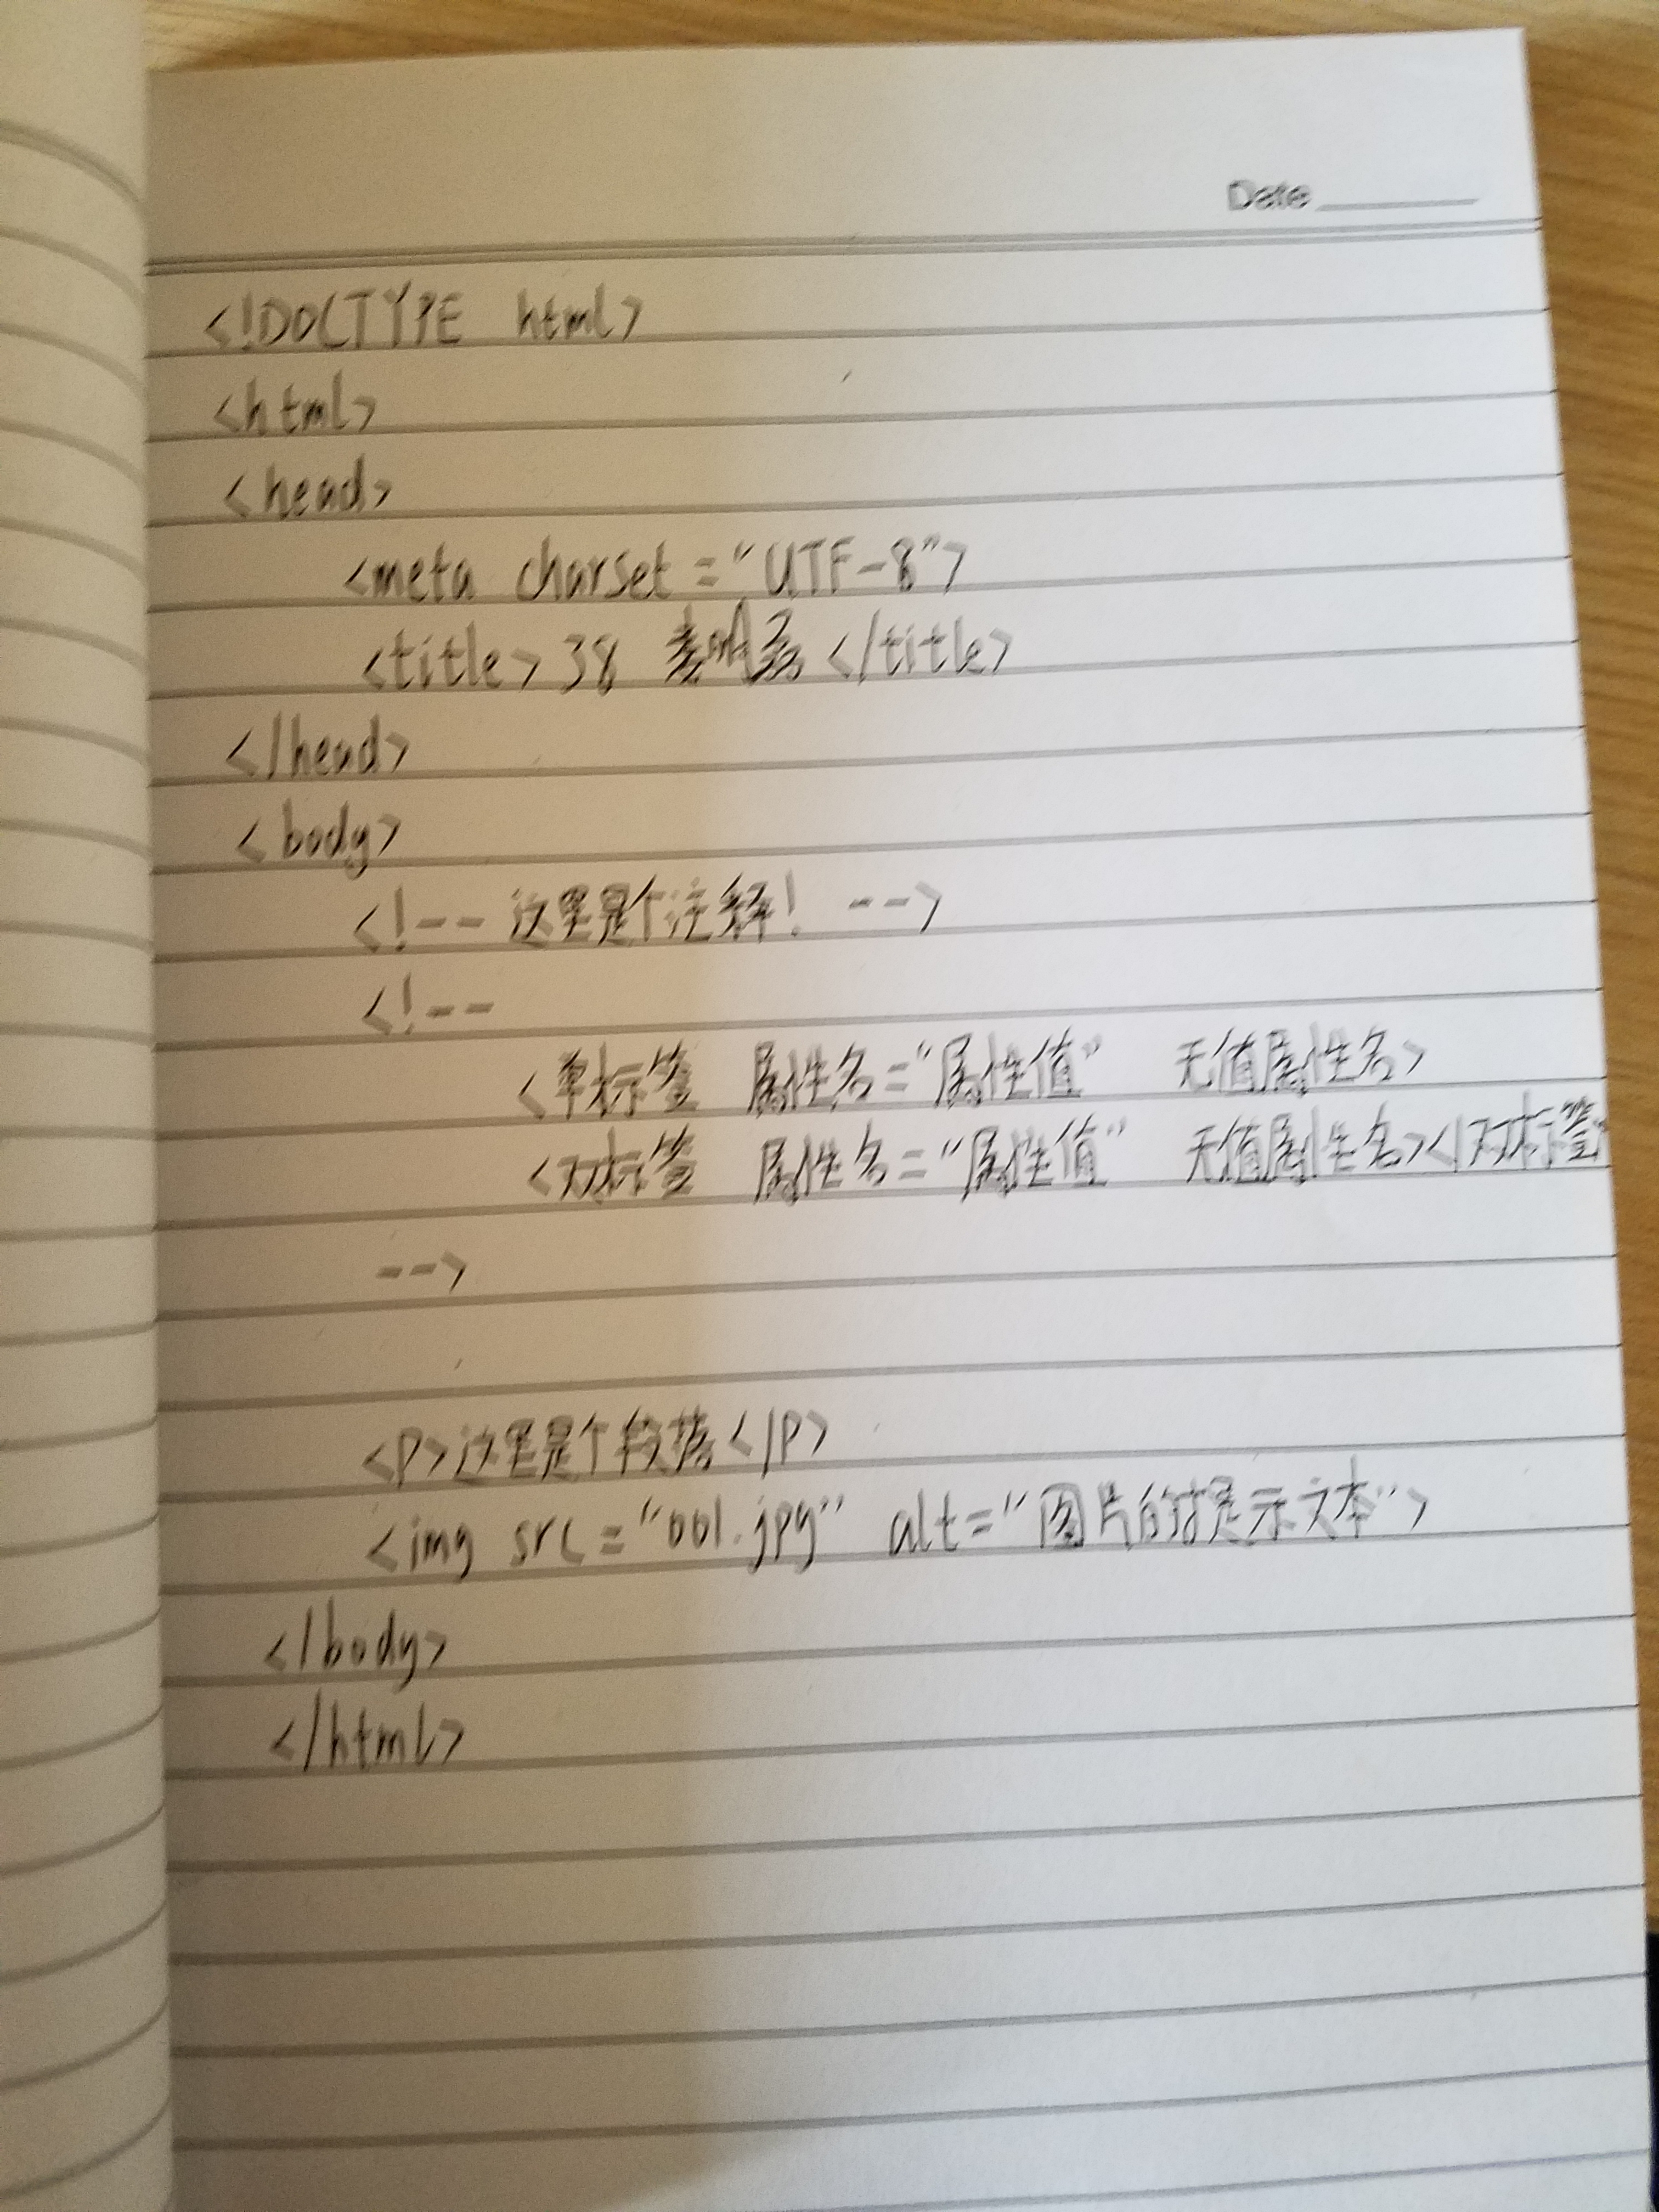 Date
<!DOCTYPE html>
<html>
<head>
<meta charset="UTF-8">
<title>38 </title>
</head>
<body>
<!-- 这里是个注释! -->
<!--
<单标签 属性名="属性值" 无值属性名>
<双标签 属性名="属性值" 无值属性名></双标签
-->
<P>这里是个段落</P>
<img src="001.jpg" alt="图片的提示文本">
</body>
</html>